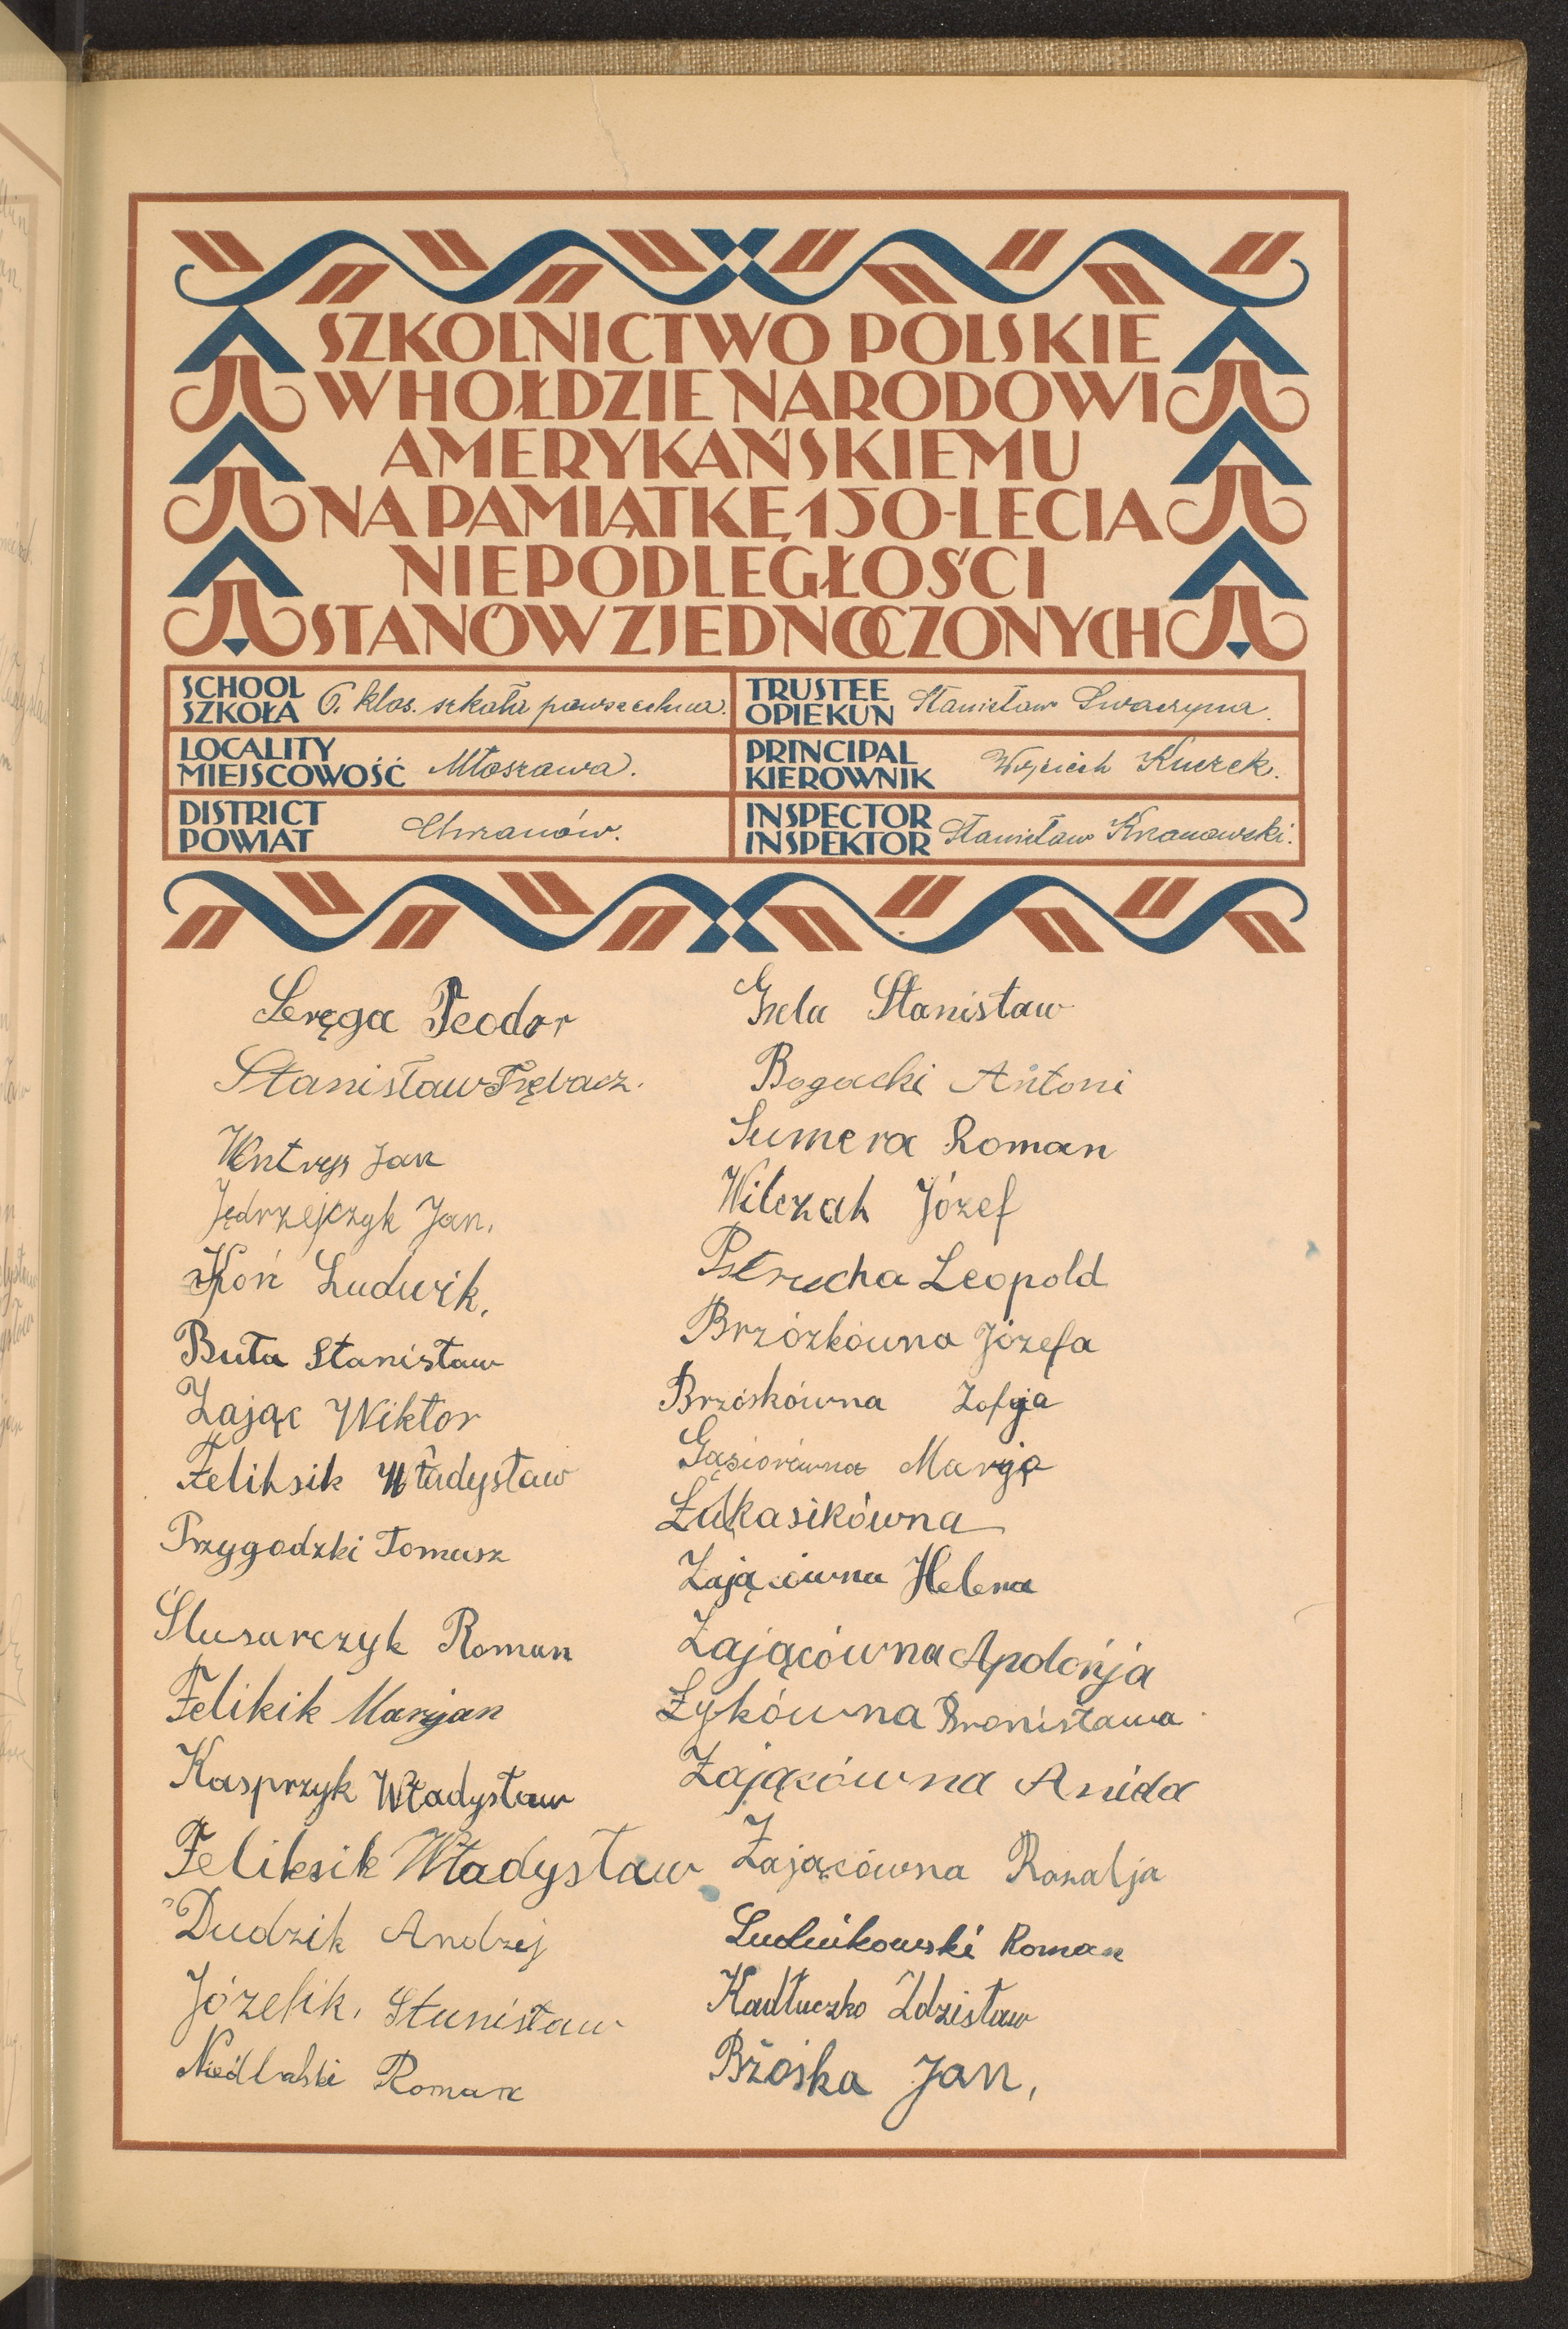 SZKOLNICTWO POLSKIE
W HOŁDZIE NARODOWI
AMERYKAŃSKIEMU
NA PAMIĄTKĘ 150-LECIA
NIEPODLEGŁOŚCI
STANÓW ZJEDNOCZONYCH
SCHOOL
SZKOŁA 6. klas. szkoła powszechna.
TRUSTEE
OPIEKUN Stanisław Swaczyna.
LOCALITY
MIEJSCOWOŚĆ Młoszowa.
PRINCIPAL
KIEROWNIK Wojciech Kuczek.
DISTRICT
POWIAT Chrzanów.
INSPECTOR
INSPEKTOR Stanisław
Seręga Teodor
Stanisław Trębacz.
Jan
Jędrzejczyk Jan.
Koń Ludwik.
Buła Stanisław
Zając Wiktor
Feliksik Władysław
Przygodzki Tomasz
Ślusarczyk Roman
Felikik Marjan
Kasprzyk Władysław
Feliksik Władysław
Dudzik Andrzej
Józefik, Stanisław
Roman
Grela Stanisław
Bogacki Antoni
Sumera Roman
Wilczak Józef
Pstrucha Leopold
Brzózkówna Józefa
Brzóskówna Zofja
Gąsiorówna Marja
Łukasikówna
Zającówna Helena
Zającówna Apolonja
Łykówna Bronisława
Zającówna Anida
Zającówna Rozalja
Ludwikowski Roman
Kadłuczko Zdzisław
Bżóska Jan,